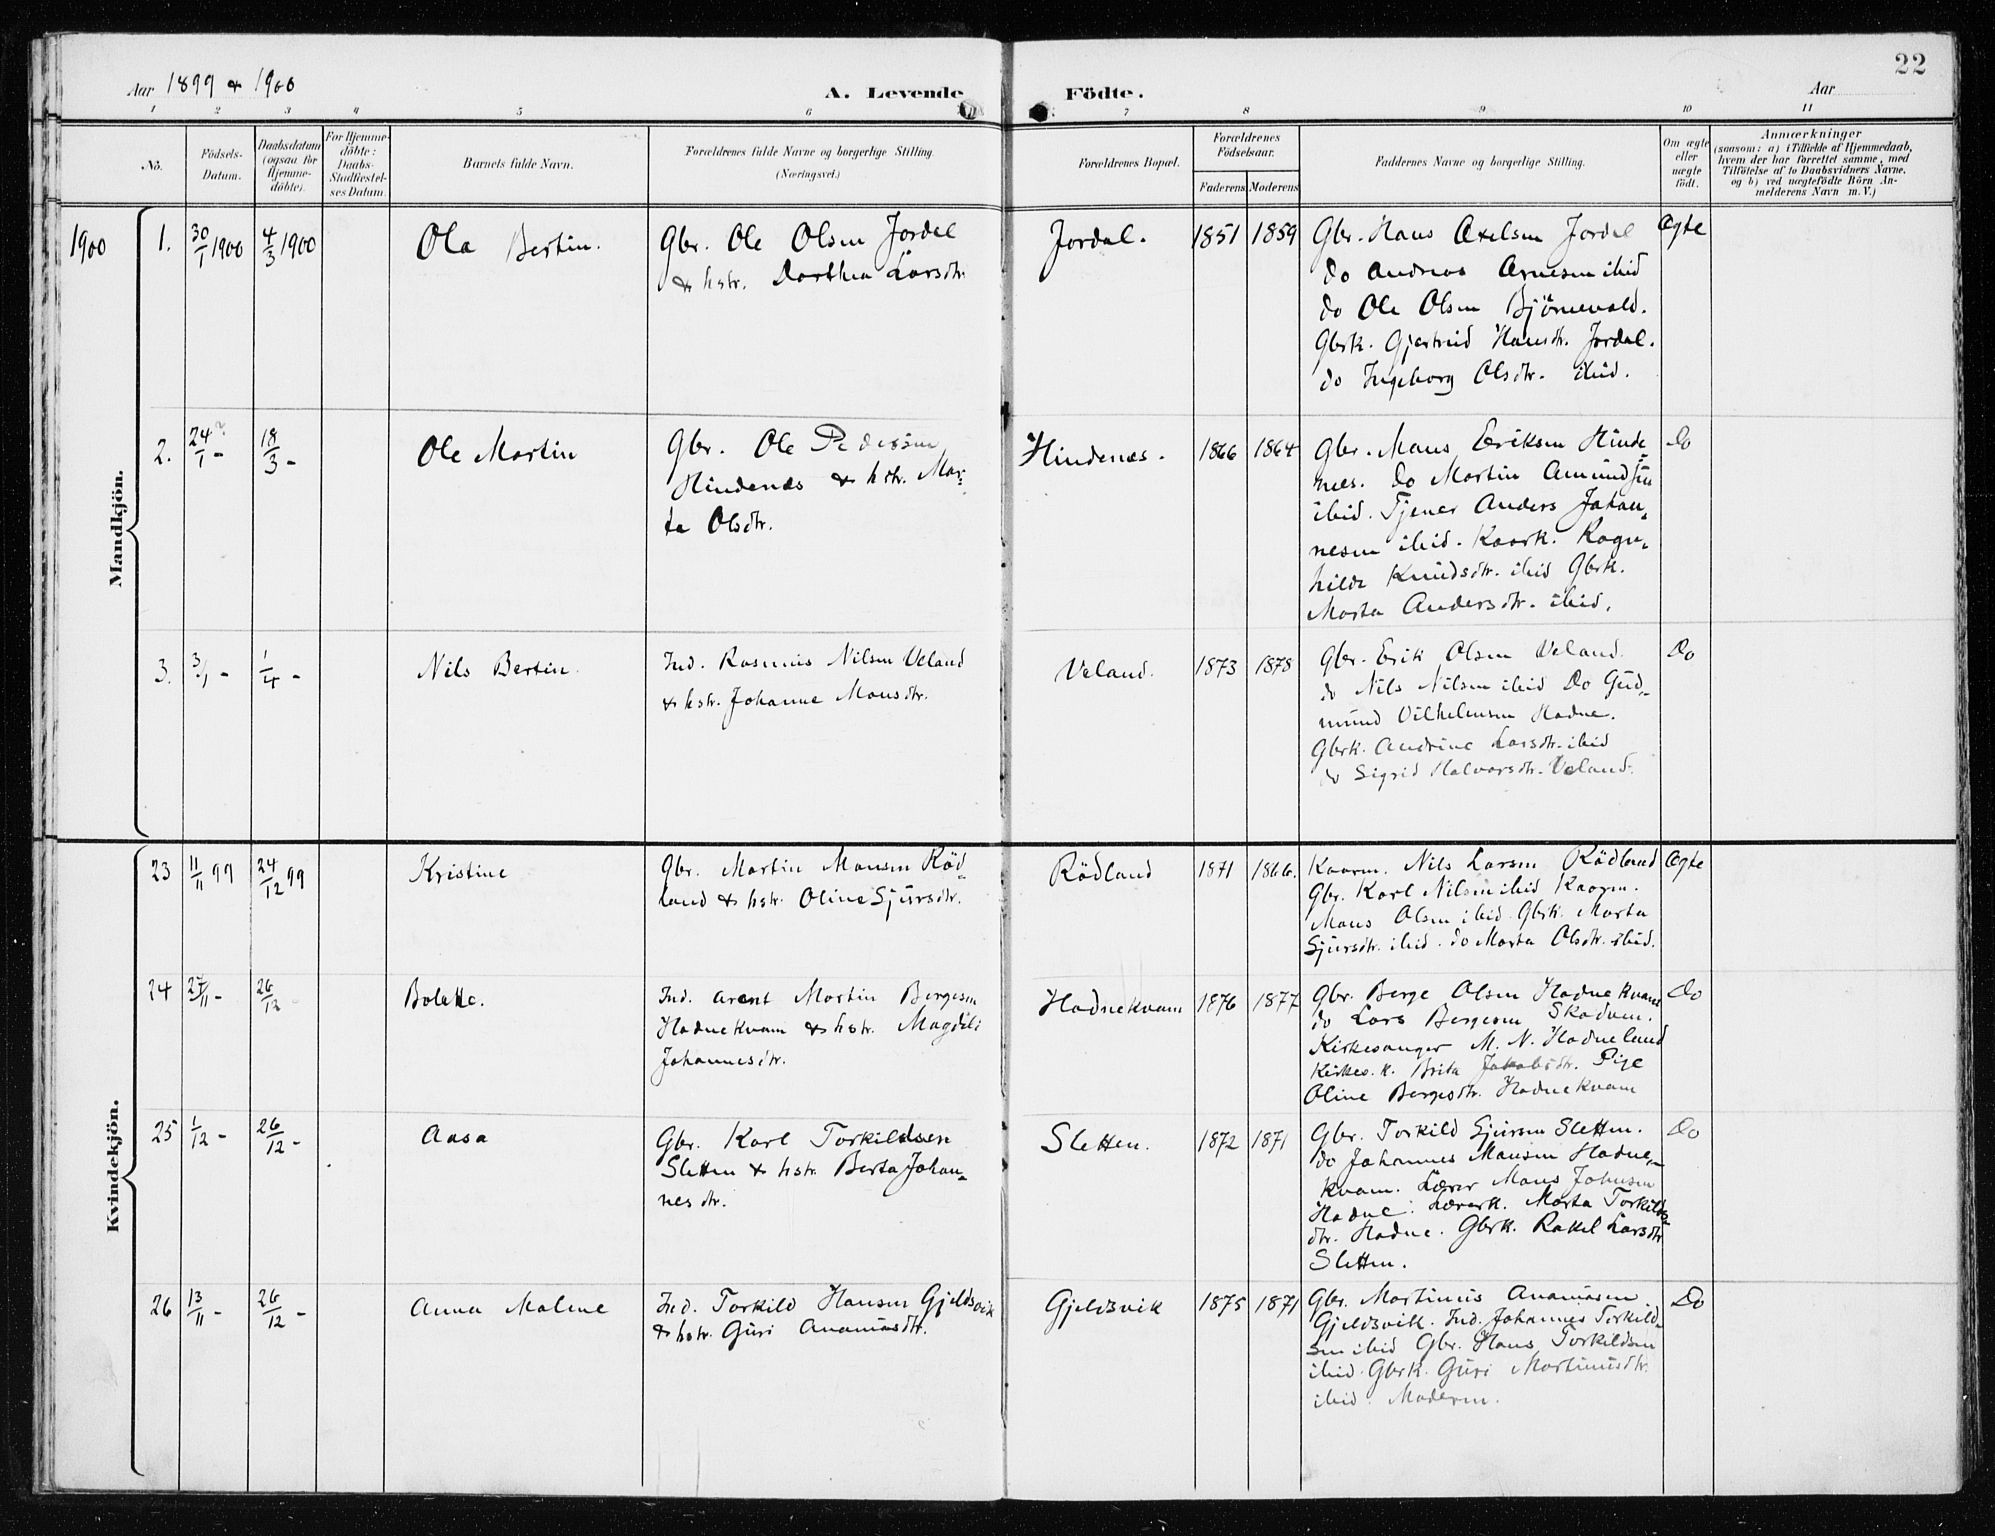 22
Aar 1899 & 1900
A. Levende Födte.
Aar
1 2 3 4 5 6 7 8 9 10 11
No.
Födsels-
Datum.
Daabsdatum
(ogsaa for
Hjemme-
döbte).
For Hjemme-
döbte:
Daabs-
Stadfæstel-
ses Datum.
Barnets fulde Navn.
Forældrenes fulde Navne og borgerlige Stilling.
(Næringsvei.)
Forældrenes Bopæl.
Forældrenes
Födselsaar.
Faderens Moderens
Faddernes Navne og borgerlige Stilling.
Om ægte
eller
uægte
födt.
Anmærkninger
(saasom: a) i Tilfælde af Hjemmedaab,
hvem der har forrettet samme, med
Tilföielse af to Daabsvidners Navne,
og b) ved uægtefödte Börn An-
melderens Navn m. V.)
Mandkjön.
1900
1. 30/1 1900 4/3 1900
Ola Bertin.
Gbr. Ole Olsen Jordal
& hstr. Dorthea Larsdtr.
Jordal. 1851 1859
Gbr. Hans Axelsen Jordal
do Andreas Arnesen ibid
do Ole Olsen Björnevold.
Gbrk. Gjertrud Hansdtr. Jordal.
do Ingeborg Olsdtr. ibid.
Ægte
2. 24/1 - 18/3 -
Ole Martin
Gbr. Ole Pedersen
Hindenes & hstr. Mar-
ta Olsdtr.
Hindenes. 1866 1864
Gbr. Mons Eriksen Hinde-
nes. do Martin Amundsen
ibid. Tjener Anders Johan-
nesen ibid. Kaark. Ragn-
hilda Knudsdtr. ibid Gbrk.
Marta Andersdtr. ibid.
Do
3. 3/1 - 1/4 -
Nils Bertin.
Ind. Rasmus Nilsen Veland
& hstr. Johanne Monsdtr.
Veland. 1873 1878
Gbr. Erik Olsen Veland.
do Nils Nilsen ibid Do Gud-
mund Vilhelmsen Hadne.
Gbrk. Andrine Larsdtr. ibid
do Sigrid Halvorsdtr. Veland.
Do
Kvindekjön.
23 11/11 99 24/12 99
Kristine
Gbr. Martin Monsen Röd-
land & hstr. Oline Sjursdtr.
Rödland 1871 1866.
Kaarm. Nils Larsen Rödland
Gbr. Karl Nilsen ibid Kaarm.
Mons Olsen ibid. Gbrk. Marta
Sjursdtr. ibid. do Marta Olsdtr. ibid.
Ægte
24 27/11 - 26/12 -
Bolette.
Ind. Arent Martin Bergesen
Hadnekvam & hstr. Magdeli
Johannesdtr.
Hadnekvam 1876 1877
Gbr. Berge Olsen Hadnekvam
do Lars Bergesen Skadven.
Kirkesanger M. N. Hadneland
Kirkes. k. Brita Jakobsdtr. Pige
Oline Bergesdtr. Hadnekvam
Do
25 1/12 - 26/12 -
Aasa
Gbr. Karl Torkildsen
Sletten & hstr. Berta Johan-
nesdtr.
Sletten. 1872 1871
Gbr. Torkild Sjursen Sletten.
do Johannes Monsen Hadne-
kvam. Lærer Mons Johnsen
Hadne. Lærerk. Marta Torkilds-
dtr. Hadne. Gbrk. Rakel Larsdtr
Sletten.
Do
26 13/11 - 26/12 -
Anna Malene
Ind. Torkild Hansen Gjeldsvik
& hstr. Guri Ananiasdtr.
Gjeldsvik 1875 1871
Gbr. Martinus Ananiasen
Gjeldsvik. Ind. Johannes Torkild-
sen ibid Gbr. Hans Torkildsen
ibid. Gbrk. Guri Martinusdtr.
ibid. Moderen.
Do